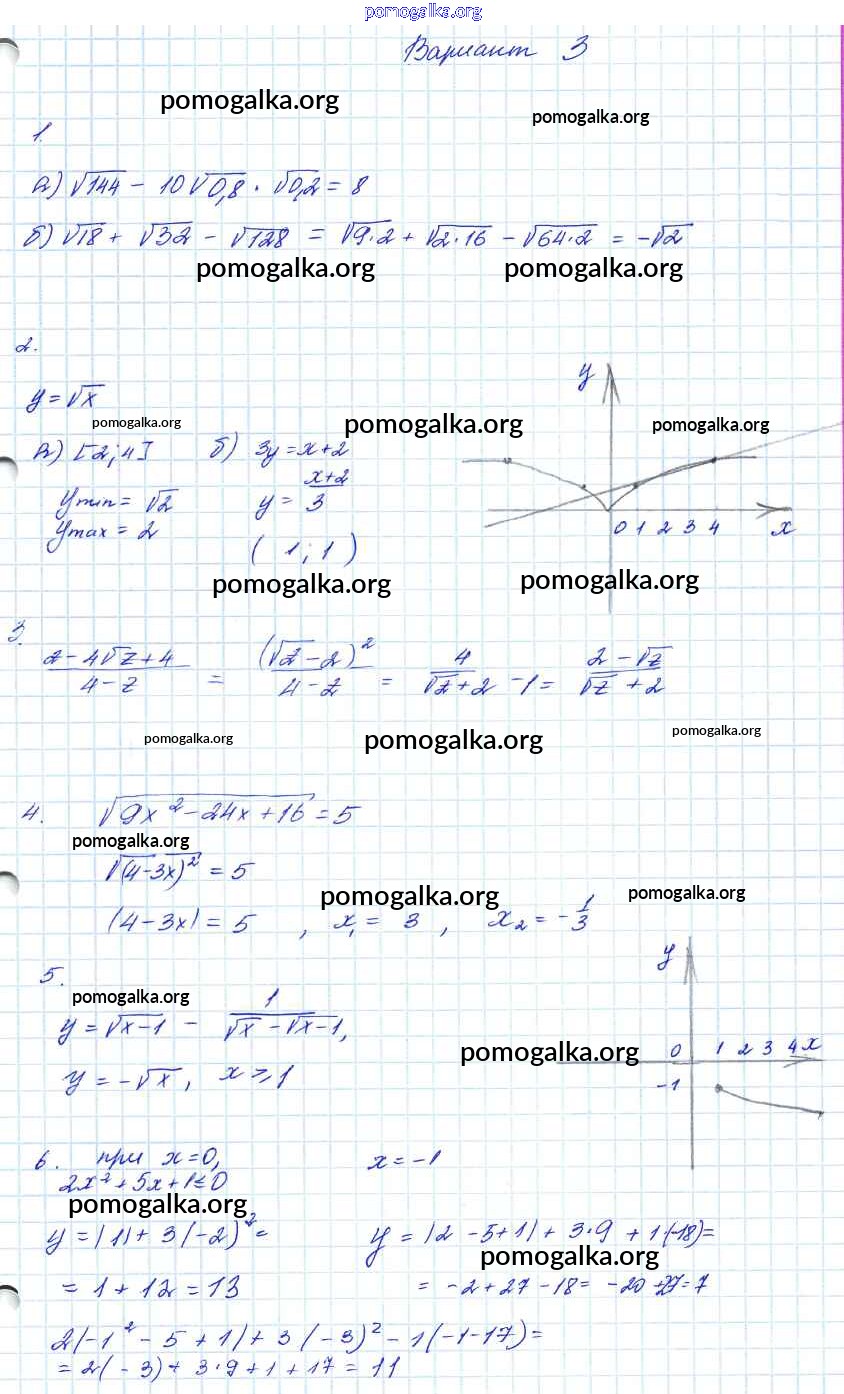 pomogalka.org
Вариант 3
pomogalka.org
pomogalka.org
1.
а) √144 − 10√0,8 · √0,2 = 8
б) √18 + √32 − √128 = √9·2 + √2·16 − √64·2 = −√2
pomogalka.org pomogalka.org
2.
y = √x
pomogalka.org pomogalka.org pomogalka.org
а) [2; 4] б) 3y = x+2
y min = √2 y = (x+2)/3
y max = 2
( 1; 1 )
y
0 1 2 3 4 x
pomogalka.org pomogalka.org
3.
(z − 4√z + 4)/(4 − z) = (√z − 2)²/(4 − z) = 4/(√z + 2) − 1 = (2 − √z)/(√z + 2)
pomogalka.org pomogalka.org pomogalka.org
4. √(9x² − 24x + 16) = 5
pomogalka.org
√(4−3x)² = 5
pomogalka.org pomogalka.org
|4 − 3x| = 5 , x₁ = 3 , x₂ = −1/3
5.
pomogalka.org
y = √x−1 − 1/(√x − √x−1),
pomogalka.org
y = −√x, x ⩾ 1
y
0 1 2 3 4 x
−1
6. при x=0, x = −1
2x² + 5x + 1 ≤ 0
pomogalka.org
y = |1| + 3(−2)² = y = |2 − 5 + 1| + 3·9 + 1·(−18) =
pomogalka.org
= 1 + 12 = 13 = −2 + 27 − 18 = −20 + 27 = 7
2(−1² − 5 + 1) + 3(−3)² − 1(−1−17) =
= 2(−3) + 3·9 + 1 + 17 = 11